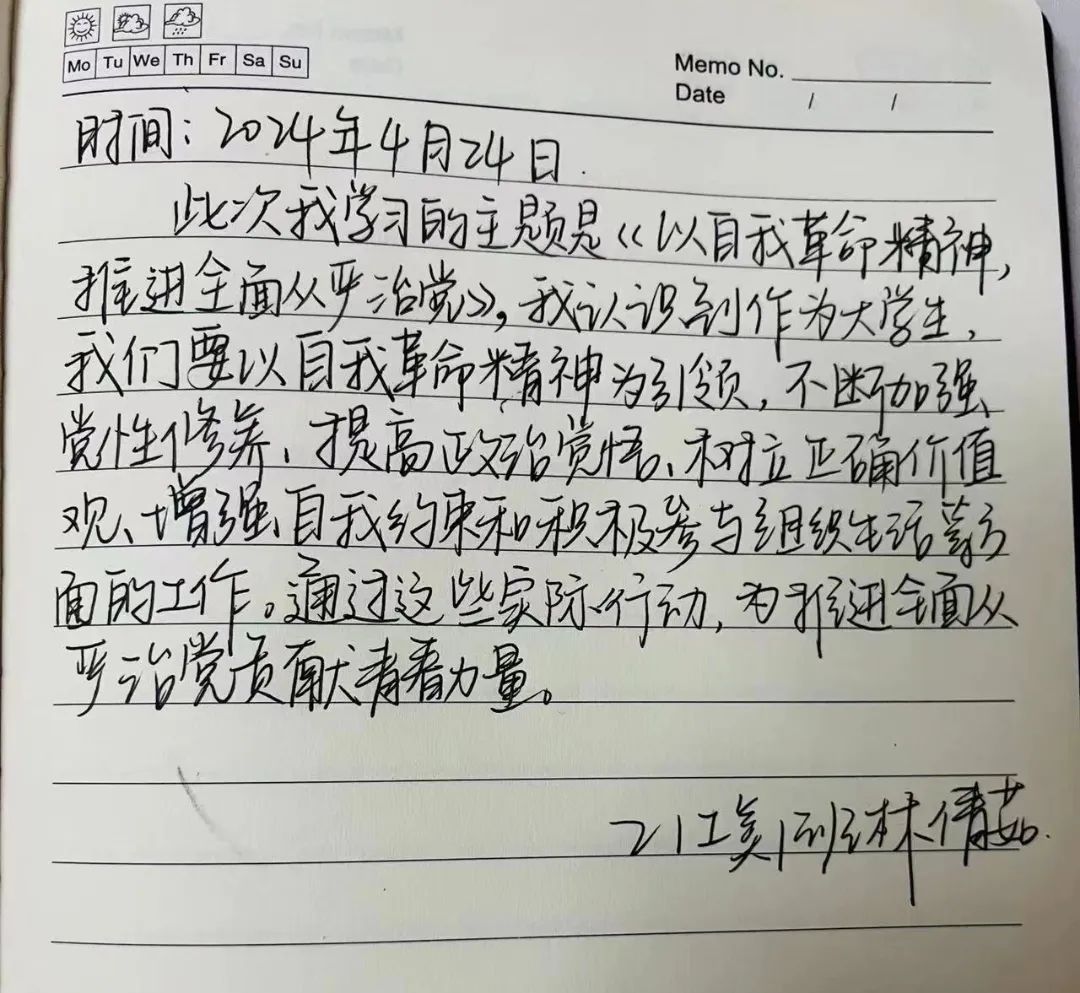 Mo Tu We Th Fr Sa Su
Memo No.
Date / /
时间：2024年4月24日.
此次我学习的主题是《以自我革命精神，
推进全面从严治党》，我认识到作为大学生，
我们要以自我革命精神为引领，不断加强
党性修养、提高政治觉悟、树立正确价值
观、增强自我约束和积极参与组织生活等方
面的工作。通过这些实际行动，为推进全面从
严治党贡献青春力量。
21工美1班林倩茹.